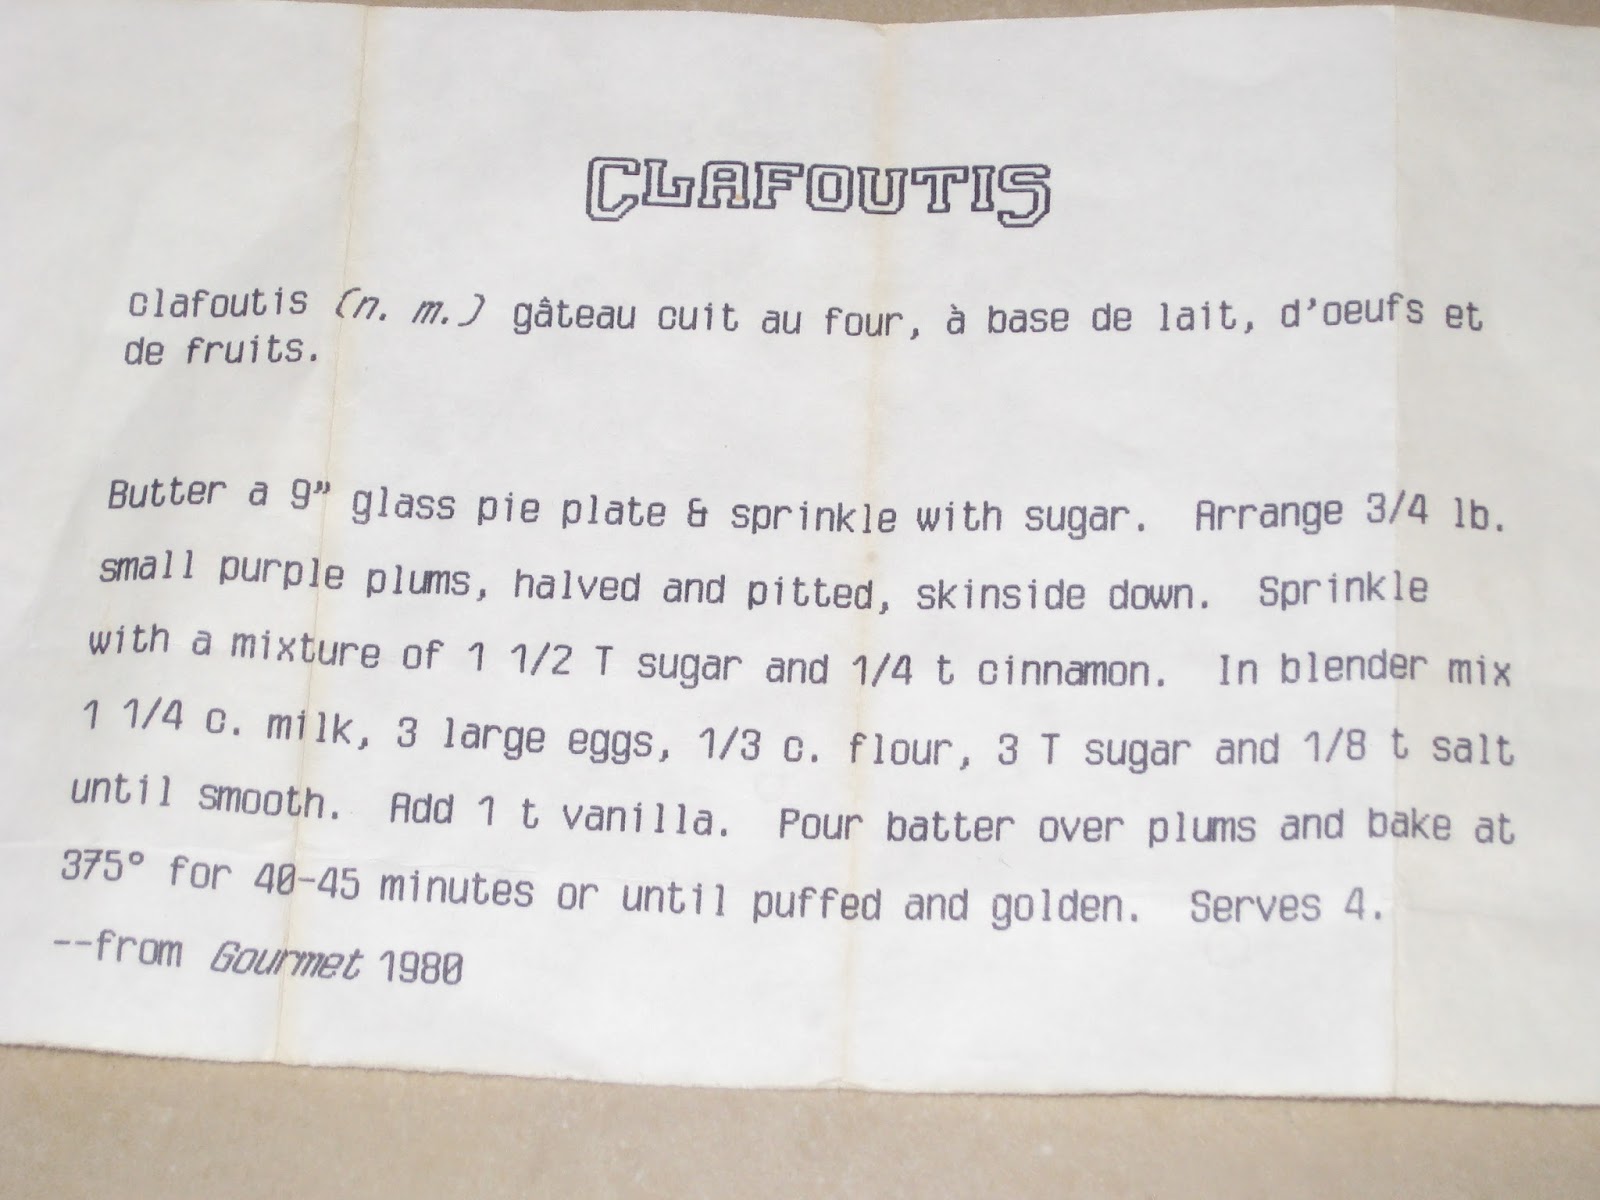 CLAFOUTIS
clafoutis (n. m.) gâteau cuit au four, à base de lait, d'oeufs et
de fruits.
Butter a 9" glass pie plate & sprinkle with sugar. Arrange 3/4 lb.
small purple plums, halved and pitted, skinside down. Sprinkle
with a mixture of 1 1/2 T sugar and 1/4 t cinnamon. In blender mix
1 1/4 c. milk, 3 large eggs, 1/3 c. flour, 3 T sugar and 1/8 t salt
until smooth. Add 1 t vanilla. Pour batter over plums and bake at
375° for 40-45 minutes or until puffed and golden. Serves 4.
--from Gourmet 1980